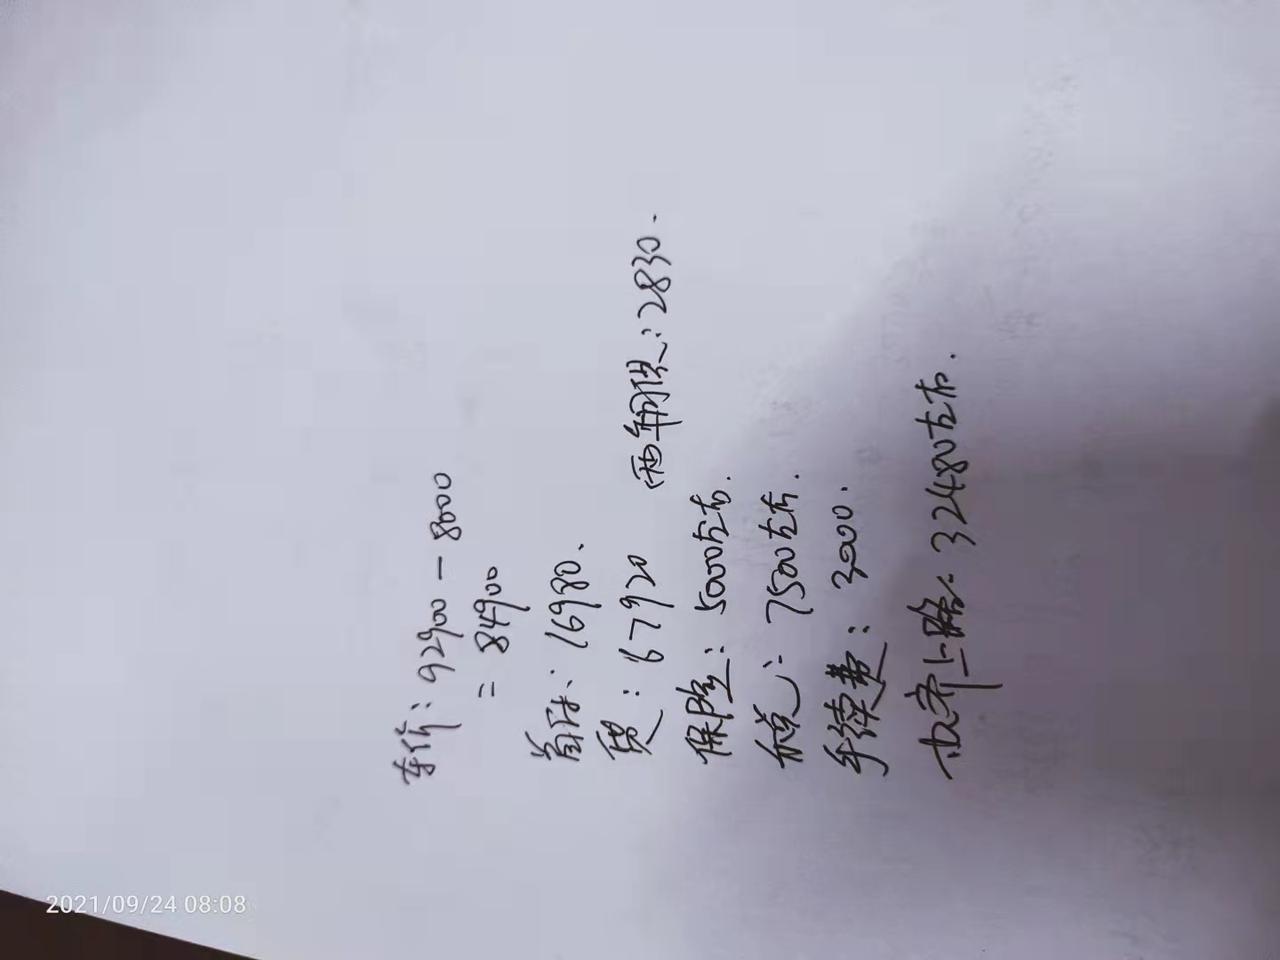 车价：92900－8000
＝84900
首付：16980、
贷：67920 （两年月供：2830．
保险：5000左右．
税：7500左右．
手续费：3000．
上路：32480左右．
2021/09/24 08:08